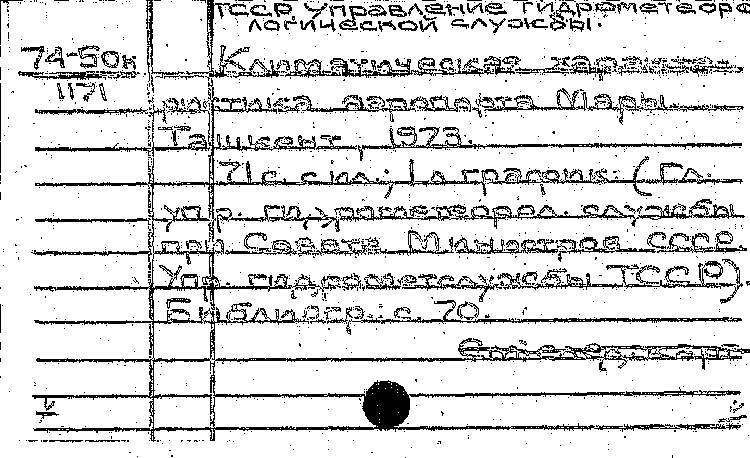 ТССР Управление гидрометеоро-
логической службы.
74-50к Климатическая характе-
1171
ристика аэропорта Мары.
Ташкент, 1973.
71 с. с ил.; 1 л график. (Гл.
упр. гидрометеорол. службы
при Совете Министров СССР
Упр. гидрометслужбы ТССР).
Библиогр.: с. 70.